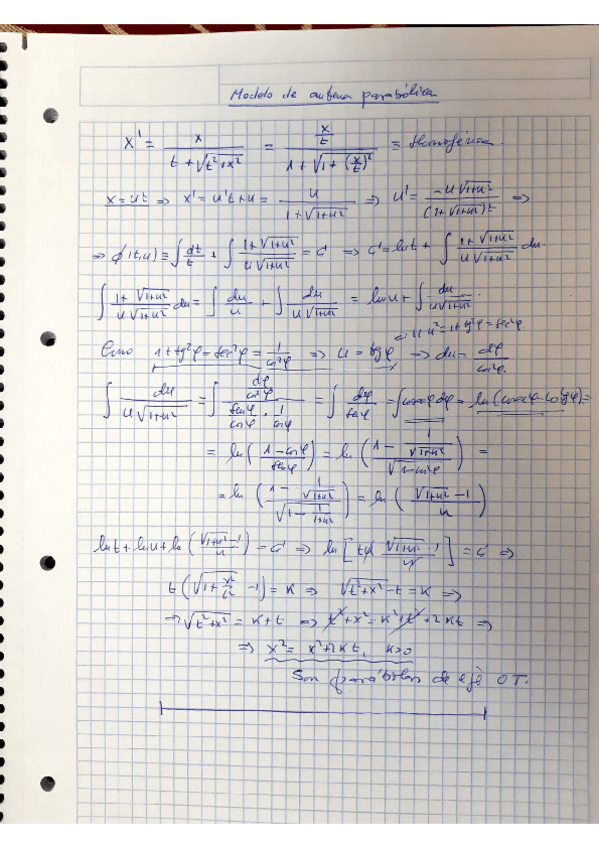 Modelo de antena parabólica
x' = x / (t + √(t²+x²)) = (x/t) / (1 + √(1 + (x/t)²)) ≡ Homogénea.
x = ut ⇒ x' = u't + u = u / (1 + √(1+u²)) ⇒ u' = -u√(1+u²) / ((1+√(1+u²))t) ⇒
⇒ φ(t,u) ≡ ∫ dt/t + ∫ (1+√(1+u²)) / (u√(1+u²)) = C ⇒ C = ln t + ∫ (1+√(1+u²)) / (u√(1+u²)) du.
∫ (1+√(1+u²)) / (u√(1+u²)) du = ∫ du/u + ∫ du / (u√(1+u²)) = ln u + ∫ du / (u√(1+u²)).
1+u² = 1+tg²φ = sec²φ.
Como 1+tg²φ = sec²φ = 1/cos²φ ⇒ u = tgφ → du = dφ/cos²φ.
∫ du / (u√(1+u²)) = ∫ (dφ/cos²φ) / (senφ/cosφ · 1/cosφ) = ∫ dφ/senφ = ∫ cosecφ dφ = ln (cosecφ - cotgφ) =
= ln ((1-cosφ)/senφ) = ln ((1 - 1/√(1+u²)) / √(1-cos²φ)) =
= ln ((1 - 1/√(1+u²)) / √(1 - 1/(1+u²))) = ln ((√(1+u²) - 1)/u)
ln t + ln u + ln ((√(1+u²)-1)/u) = C ⇒ ln [tu (√(1+u²) - 1)/u] = C ⇒
t(√(1+x²/t²) - 1) = K ⇒ √(t²+x²) - t = K ⇒
⇒ √(t²+x²) = K+t ⇒ t²+x² = K²+t²+2Kt ⇒
⇒ x² = x²+2Kt, K>0
Son parábolas de eje OT.